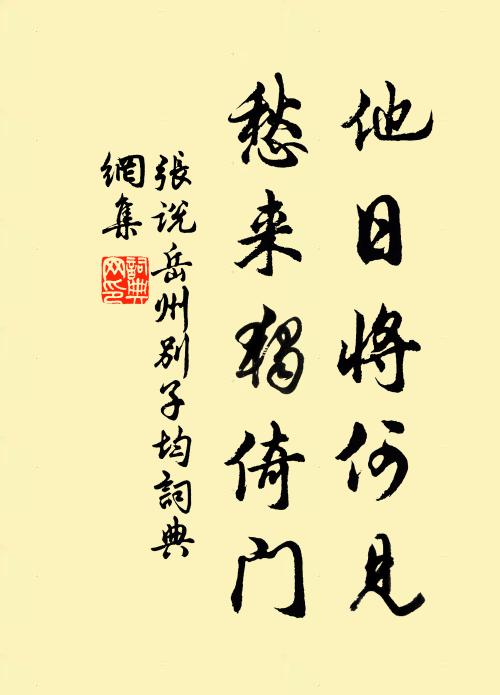 他日将何見
愁来獨倚门
張说岳州别子均詞典
網集
詞典
网印